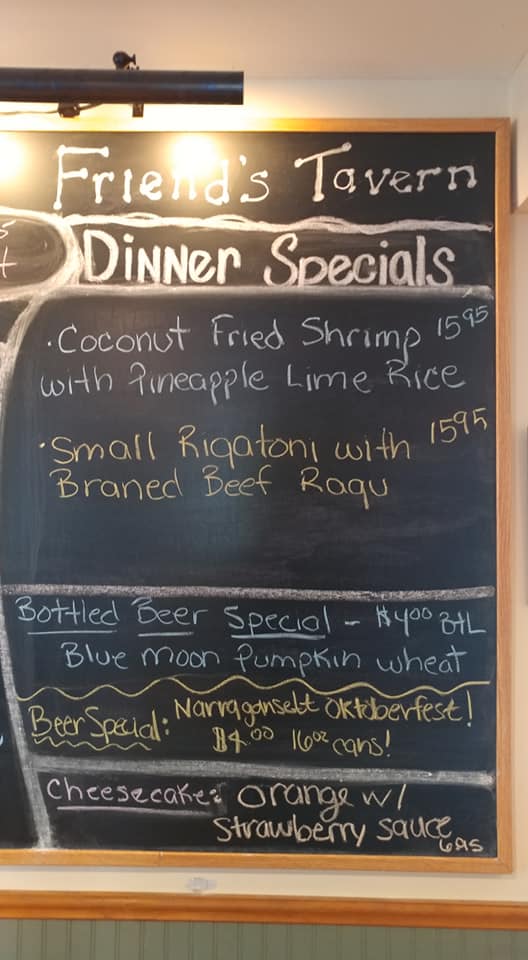 Friend's Tavern
Dinner Specials
·Coconut Fried Shrimp 15 95
with Pineapple Lime Rice
·Small Rigatoni with 15 95
Braned Beef Ragu
Bottled Beer Special - $4 00 BtL
Blue moon Pumpkin wheat
Beer Special: Narragansett Oktoberfest!
$4.00 16oz cans!
Cheesecake: orange w/
Strawberry sauce
6.95